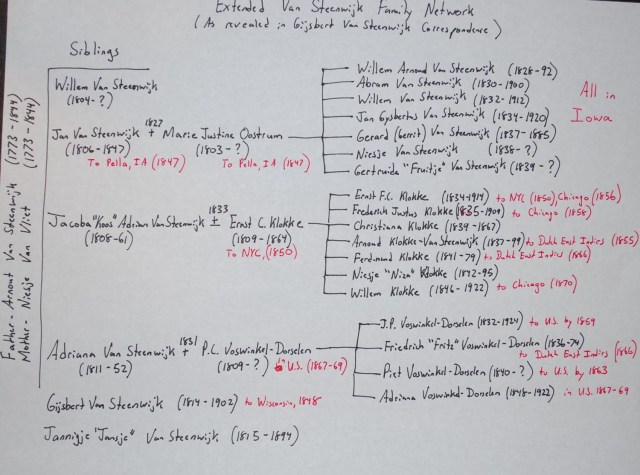 Extended Van Steenwijk Family Network
(As revealed in Gijsbert Van Steenwijk Correspondence)
Siblings
Father - Arnout Van Steenwijk (1773-1844)
Mother - Niesje Van Vliet (1773-1844)
Willem Van Steenwijk
(1804-?)
Jan Van Steenwijk + Marie Justine Oostrum
1827
(1806-1847) (1803-?)
To Pella, IA (1847) To Pella, IA (1847)
Willem Arnoud Van Steenwijk (1828-92)
Abram Van Steenwijk (1830-1900)
Willem Van Steenwijk (1832-1912)
Jan Gysbertus Van Steenwijk (1834-1920)
Gerard (Gerrit) Van Steenwijk (1837-1885)
Niesje Van Steenwijk (1838-?)
Gertruida "Fruitje" Van Steenwijk (1839-?)
All in
Iowa
Jacoba "Koos" Adrian Van Steenwijk + Ernst C. Klokke
1833
(1808-61) (1809-1864)
To NYC, (1850)
Ernst F.C. Klokke (1834-1914) to NYC (1850), Chicago (1856)
Frederich Justus Klokke (1835-1909) to Chicago (1858)
Christianna Klokke (1839-1867)
Arnoud Klokke-Van Steenwijk (1837-99) to Dutch East Indies (1855)
Ferdinand Klokke (1841-79) to Dutch East Indies (1866)
Niesje "Niza" Klokke (1842-95)
Willem Klokke (1846-1922) to Chicago (1870)
Adriana Van Steenwijk + P.C. Voswinkel-Dorselen
1831
(1811-52) (1809-?) U.S. (1867-69)
J.P. Voswinkel-Dorselen (1832-1924) to U.S. by 1859
Friedrich "Fritz" Voswinkel-Dorselen (1836-74)
to Dutch East Indies (1866)
Piet Voswinkel-Dorselen (1840-?) to U.S. by 1863
Adriana Voswinkel-Dorselen (1848-1922) in U.S. 1867-69
Gijsbert Van Steenwijk (1814-1902) to Wisconsin, 1848
Jannigje "Jansje" Van Steenwijk (1815-1894)